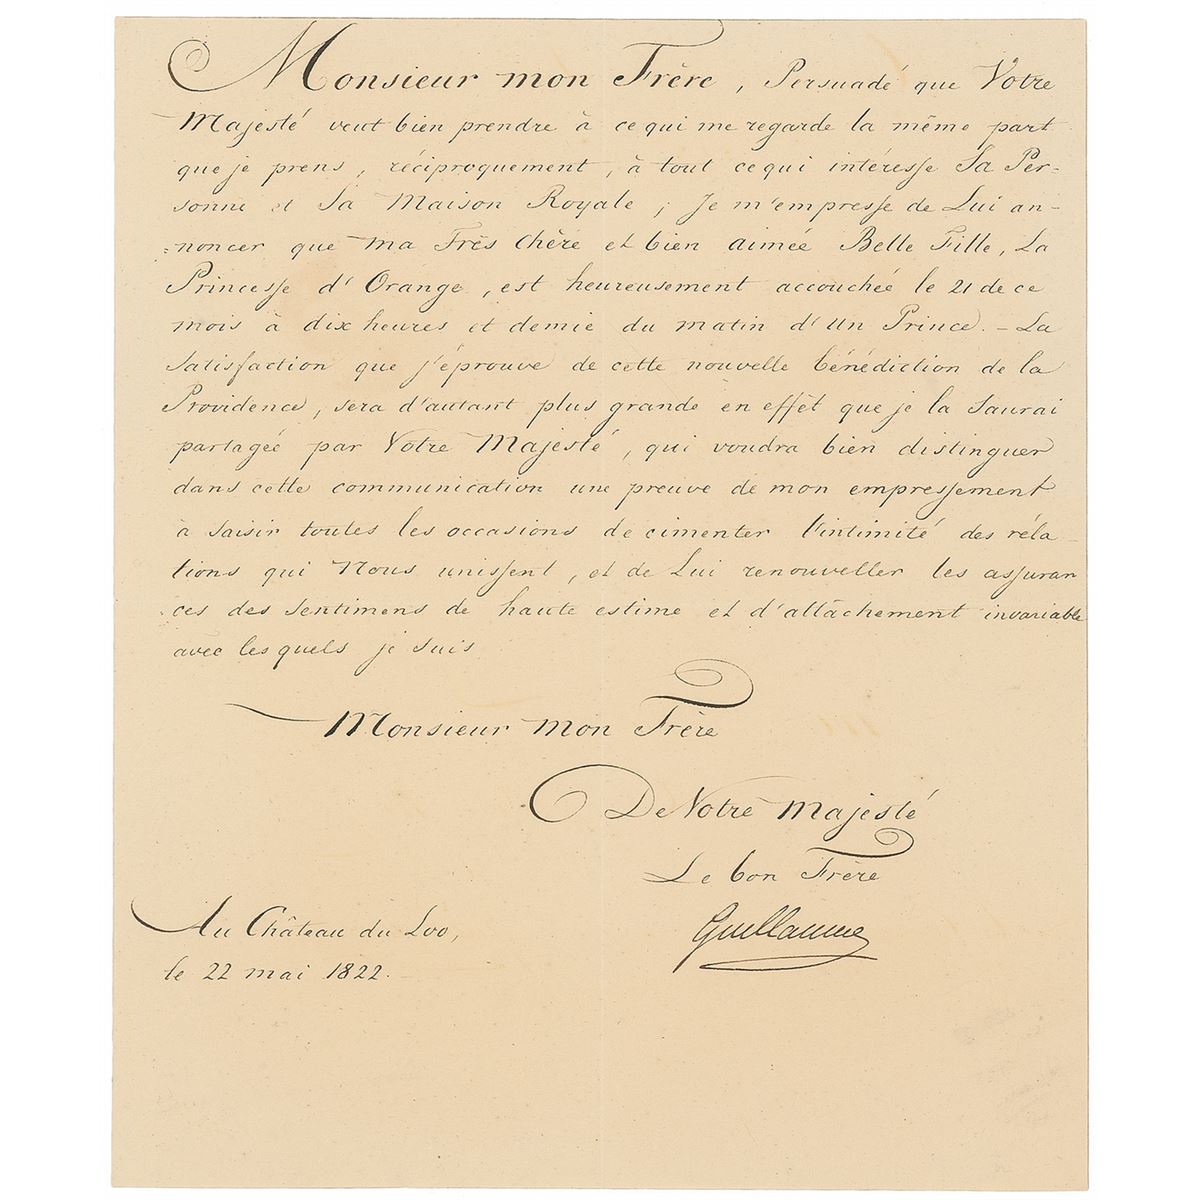 Monsieur mon Frère, Persuadé que Votre
Majesté veut bien prendre à ce qui me regarde la même part
que je prens, réciproquement, à tout ce qui intéresse Sa Per-
sonne et Sa Maison Royale; Je m'empresse de Lui an-
noncer que ma Très Chère et bien aimée Belle Fille, La
Princesse d'Orange, est heureusement accouchée le 21 de ce
mois à dix heures et demie du matin d'Un Prince. - La
Satisfaction que j'éprouve de cette nouvelle bénédiction de la
Providence, sera d'autant plus grande en effèt que je la Saurai
partagée par Votre Majesté, qui voudra bien distinguer
dans cette communication une preuve de mon empressement
à saisir toutes les occasions de cimenter l'intimité des réla-
tions qui Nous unissent, et de Lui renouveller les assuran
ces des Sentimens de haute estime et d'attâchement invariable
avec les quels je suis
Monsieur mon Frère
De Votre Majesté
Le bon Frère
Guillaume
Au Château du Loo,
le 22 mai 1822.